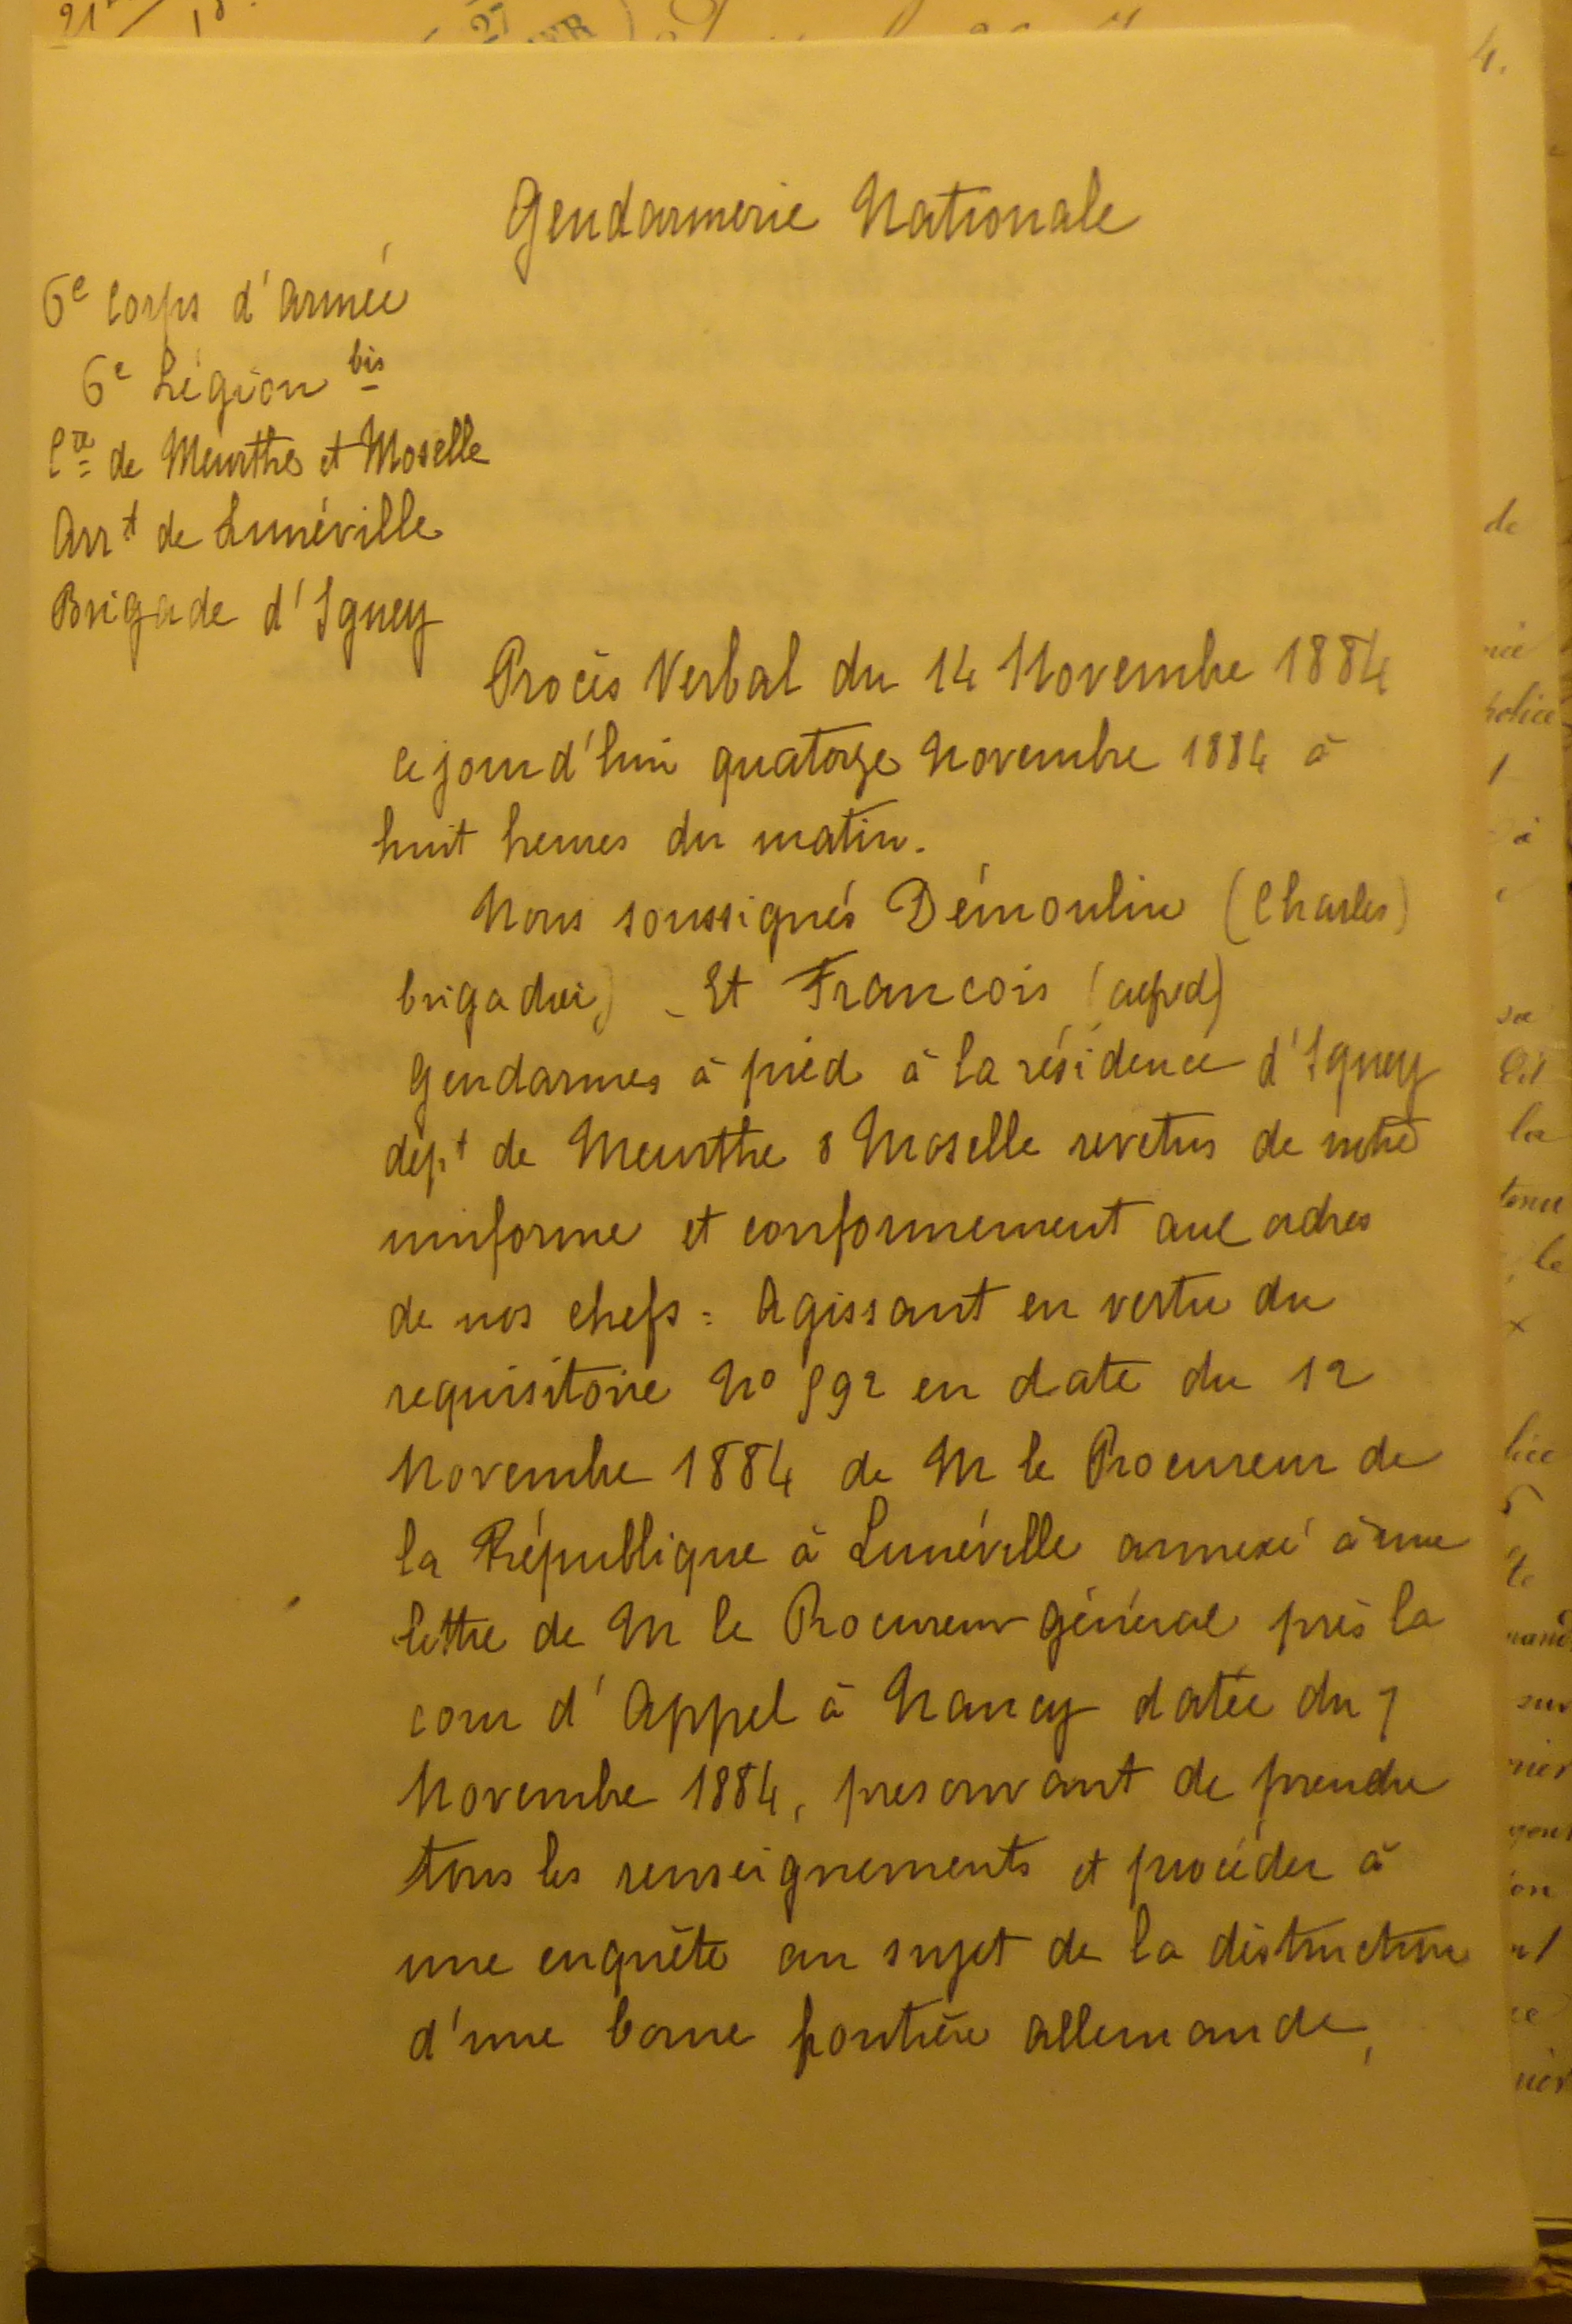 Gendarmerie Nationale
6e Corps d'Armée
6e Légion bis
Cie de Meurthe et Moselle
Arrt de Lunéville
Brigade d'Igney
Procès Verbal du 14 Novembre 1884
Ce jourd'hui quatorze Novembre 1884 à
huit heures du matin.
Nous soussignés Démoulin (Charles)
brigadier) - Et Francois
gendarmes à pied à la résidence d'Igney
dépt de Meurthe & Moselle revetus de notre
uniforme et conformement aux ordres
de nos chefs : Agissant en vertu du
requisitoire No 592 en date du 12
Novembre 1884 de M le Procureur de
la République à Lunéville annexé à une
lettre de M le Procureur général près la
cour d'Appel à Nancy datée du 7
Novembre 1884, prescrivant de prendre
tous les renseignements et procéder à
une enquête au sujet de la destruction
d'une borne frontière allemande,
4.
de
police
à
la
le
sur